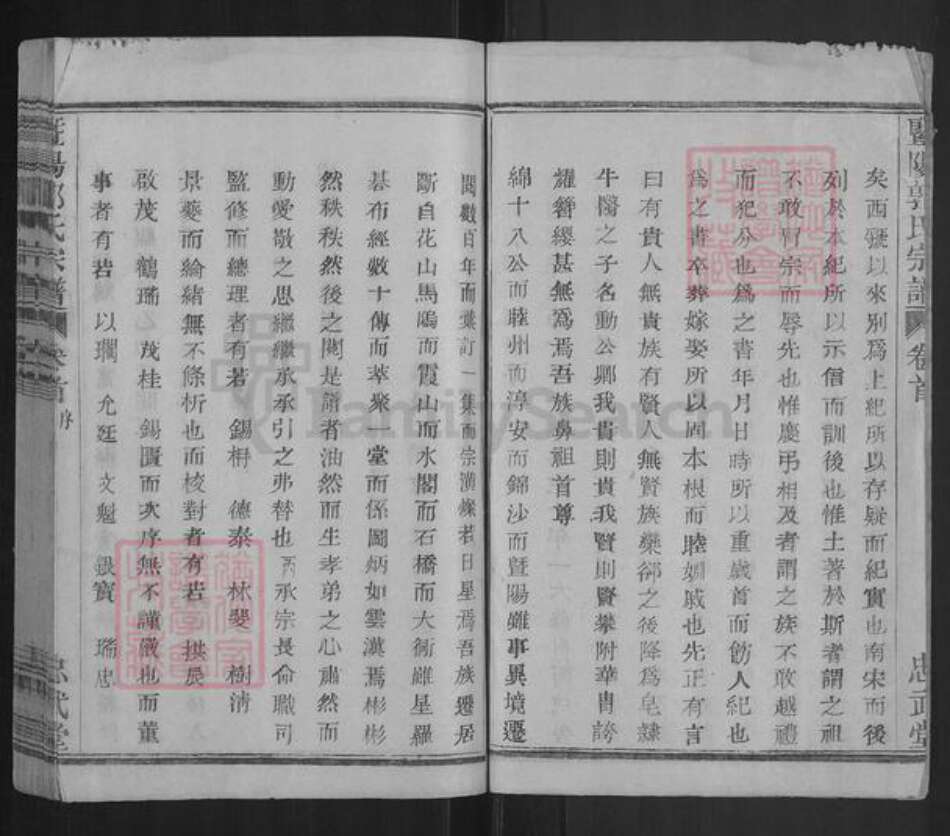 暨陽郭氏宗譜 卷首 忠武堂
矣西號以來別爲上紀所以存疑而紀實也南宋而後
列於本紀所以示信而訓後也惟土著於斯者謂之祖
不敢冒宗而辱先也惟慶弔相及者謂之族不敢越禮
而犯分也爲之書年月日時所以重歲首而飭人紀也
爲之書卒葬嫁娶所以固本根而睦婣戚也先正有言
曰有貴人無貴族有賢人無賢族欒郤之後降爲皂隸
牛醫之子名動公卿我貴則貴我賢則賢攀附華胄誇
耀簪纓甚無爲焉吾族鼻祖首尊
綿十八公而睦州而淳安而錦沙而暨陽雖事異境遷
閱數百年而彙訂一集而宗潢燦若日星焉吾族遷居
斷自花山馬鳴而霞山而水閣而石橋而大衕雖星羅
棊布經數十傳而萃聚一堂而係圖炳如雲漢焉彬彬
然秩秩然後之閱是譜者油然而生孝弟之心肅然而
動愛敬之思繼繼承承引之弗替也丙承宗長命職司
監修而總理者有若 錫枏 德泰 林斐 樹清
景蘂而綸緒無不條析也而校對者有若 拱辰
啟茂鶴瑞茂桂錫匱而次序無不謹嚴也而董
事者有若以瓓允廷文魁 銀寶 瑞忠
暨陽郭氏宗譜 卷首 序 忠武堂
FamilySearch